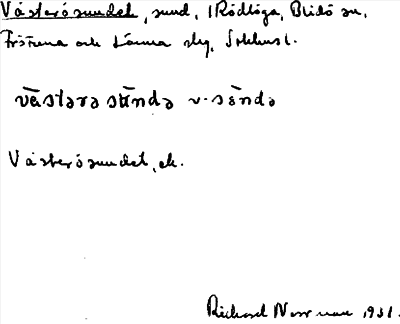 Västerösundet, sund, i Rödlöga, Blidö sn,
Frötuna och Länna skg, Sthlms l.
västərə sūndə v. sēndə
Västerösundet, ek.
Richard Norrman 1931.